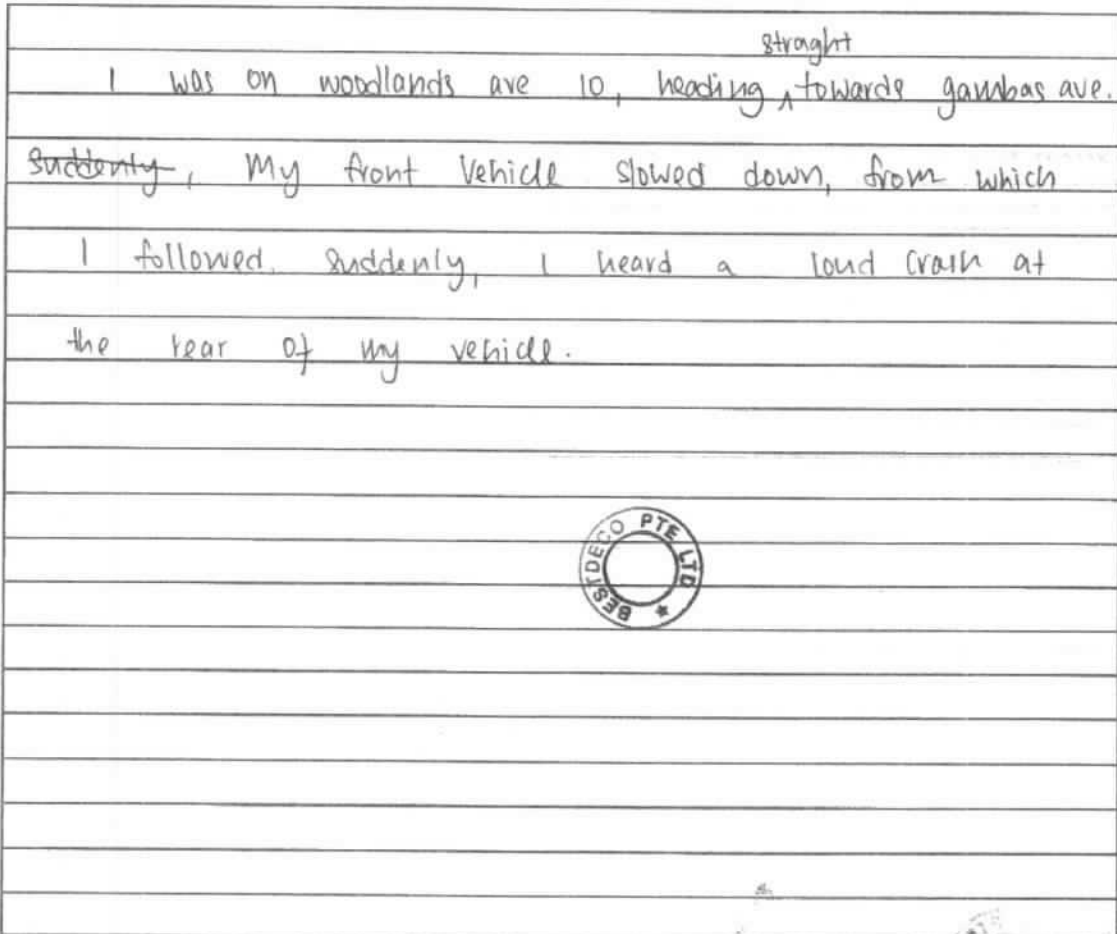 straght
I was on woodlands ave 10, heading ^ towards gambas ave.
suddenly, My front vehicle slowed down, from which
I followed. Suddenly, I heard a loud crash at
the rear of my vehicle.
BESTDECO PTE LTD *